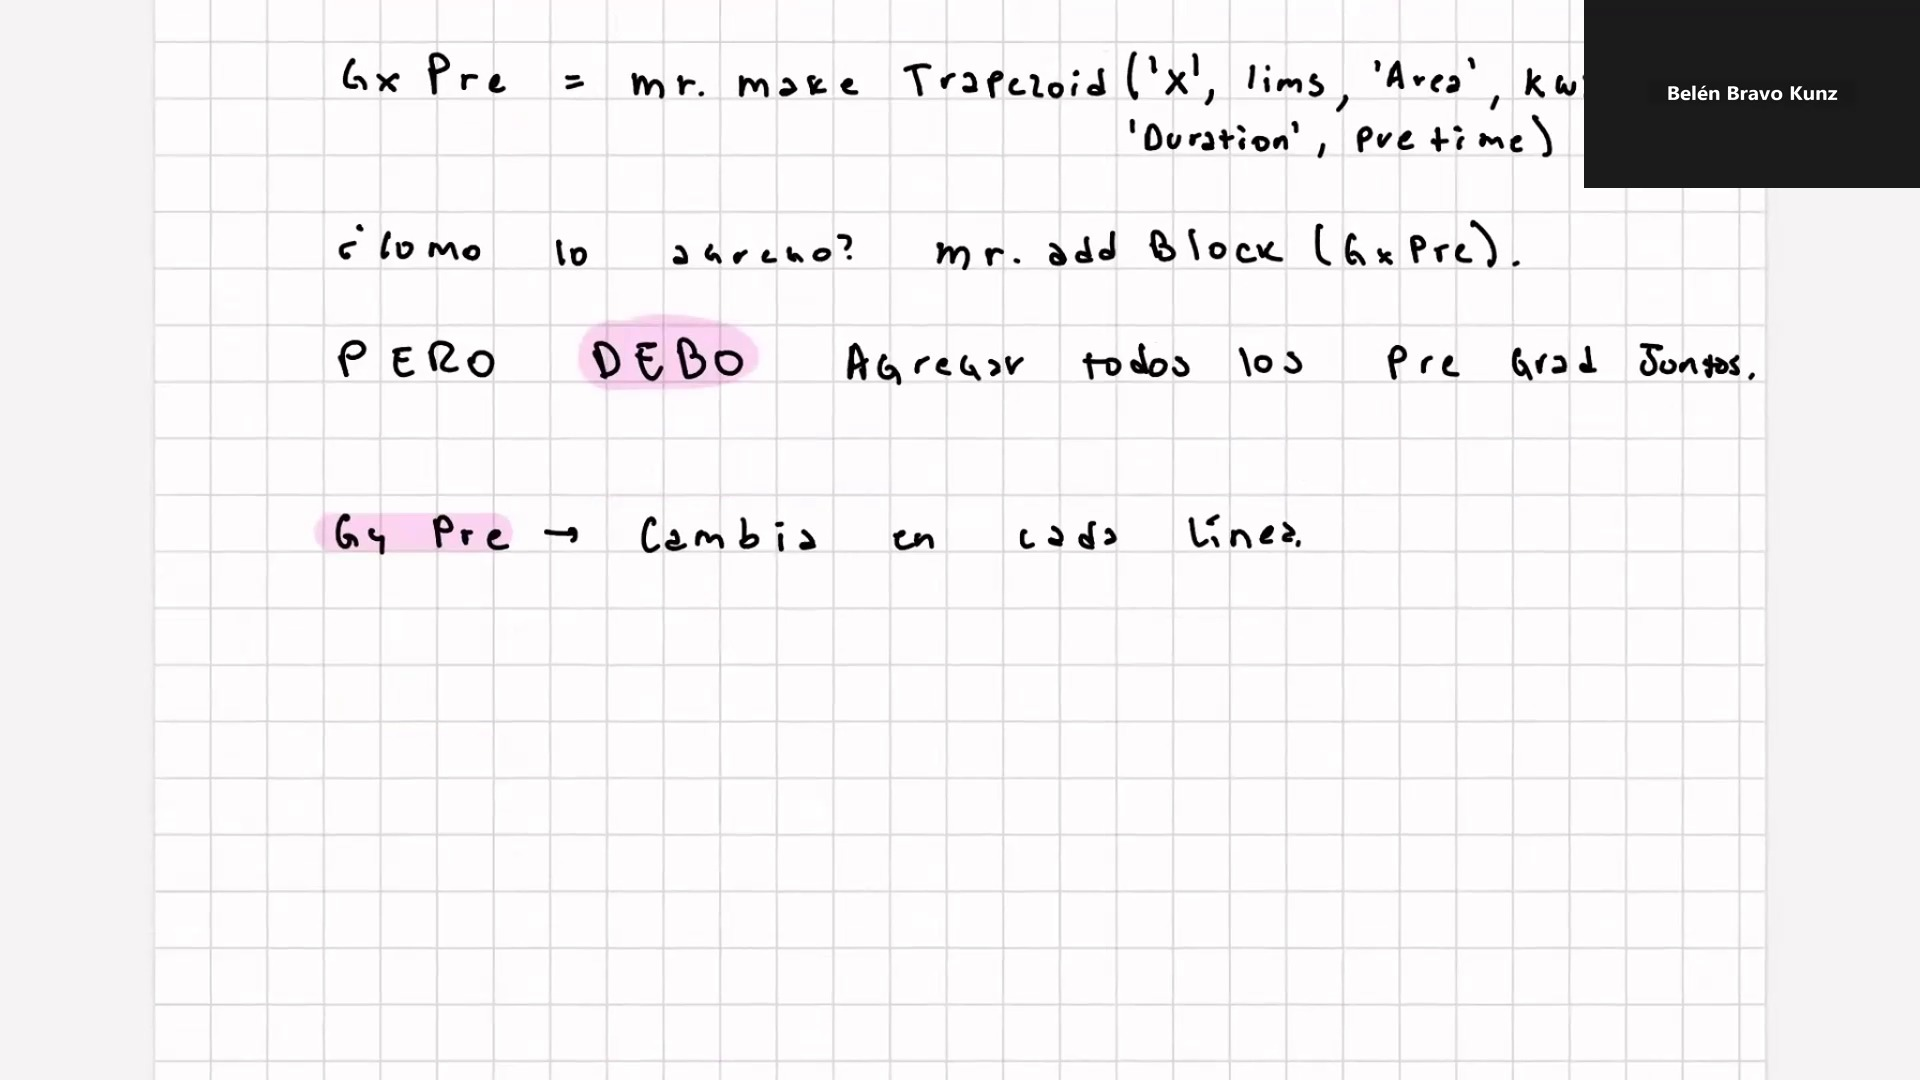 Gx Pre = mr. make Trapezoid ('x', lims, 'Area', kw
'Duration', pre time)
Belén Bravo Kunz
¿Como lo agrego? mr. add Block (Gx Pre).
PERO DEBO Agregar todos los Pre Grad Juntos.
Gy Pre → Cambia en cada línea.